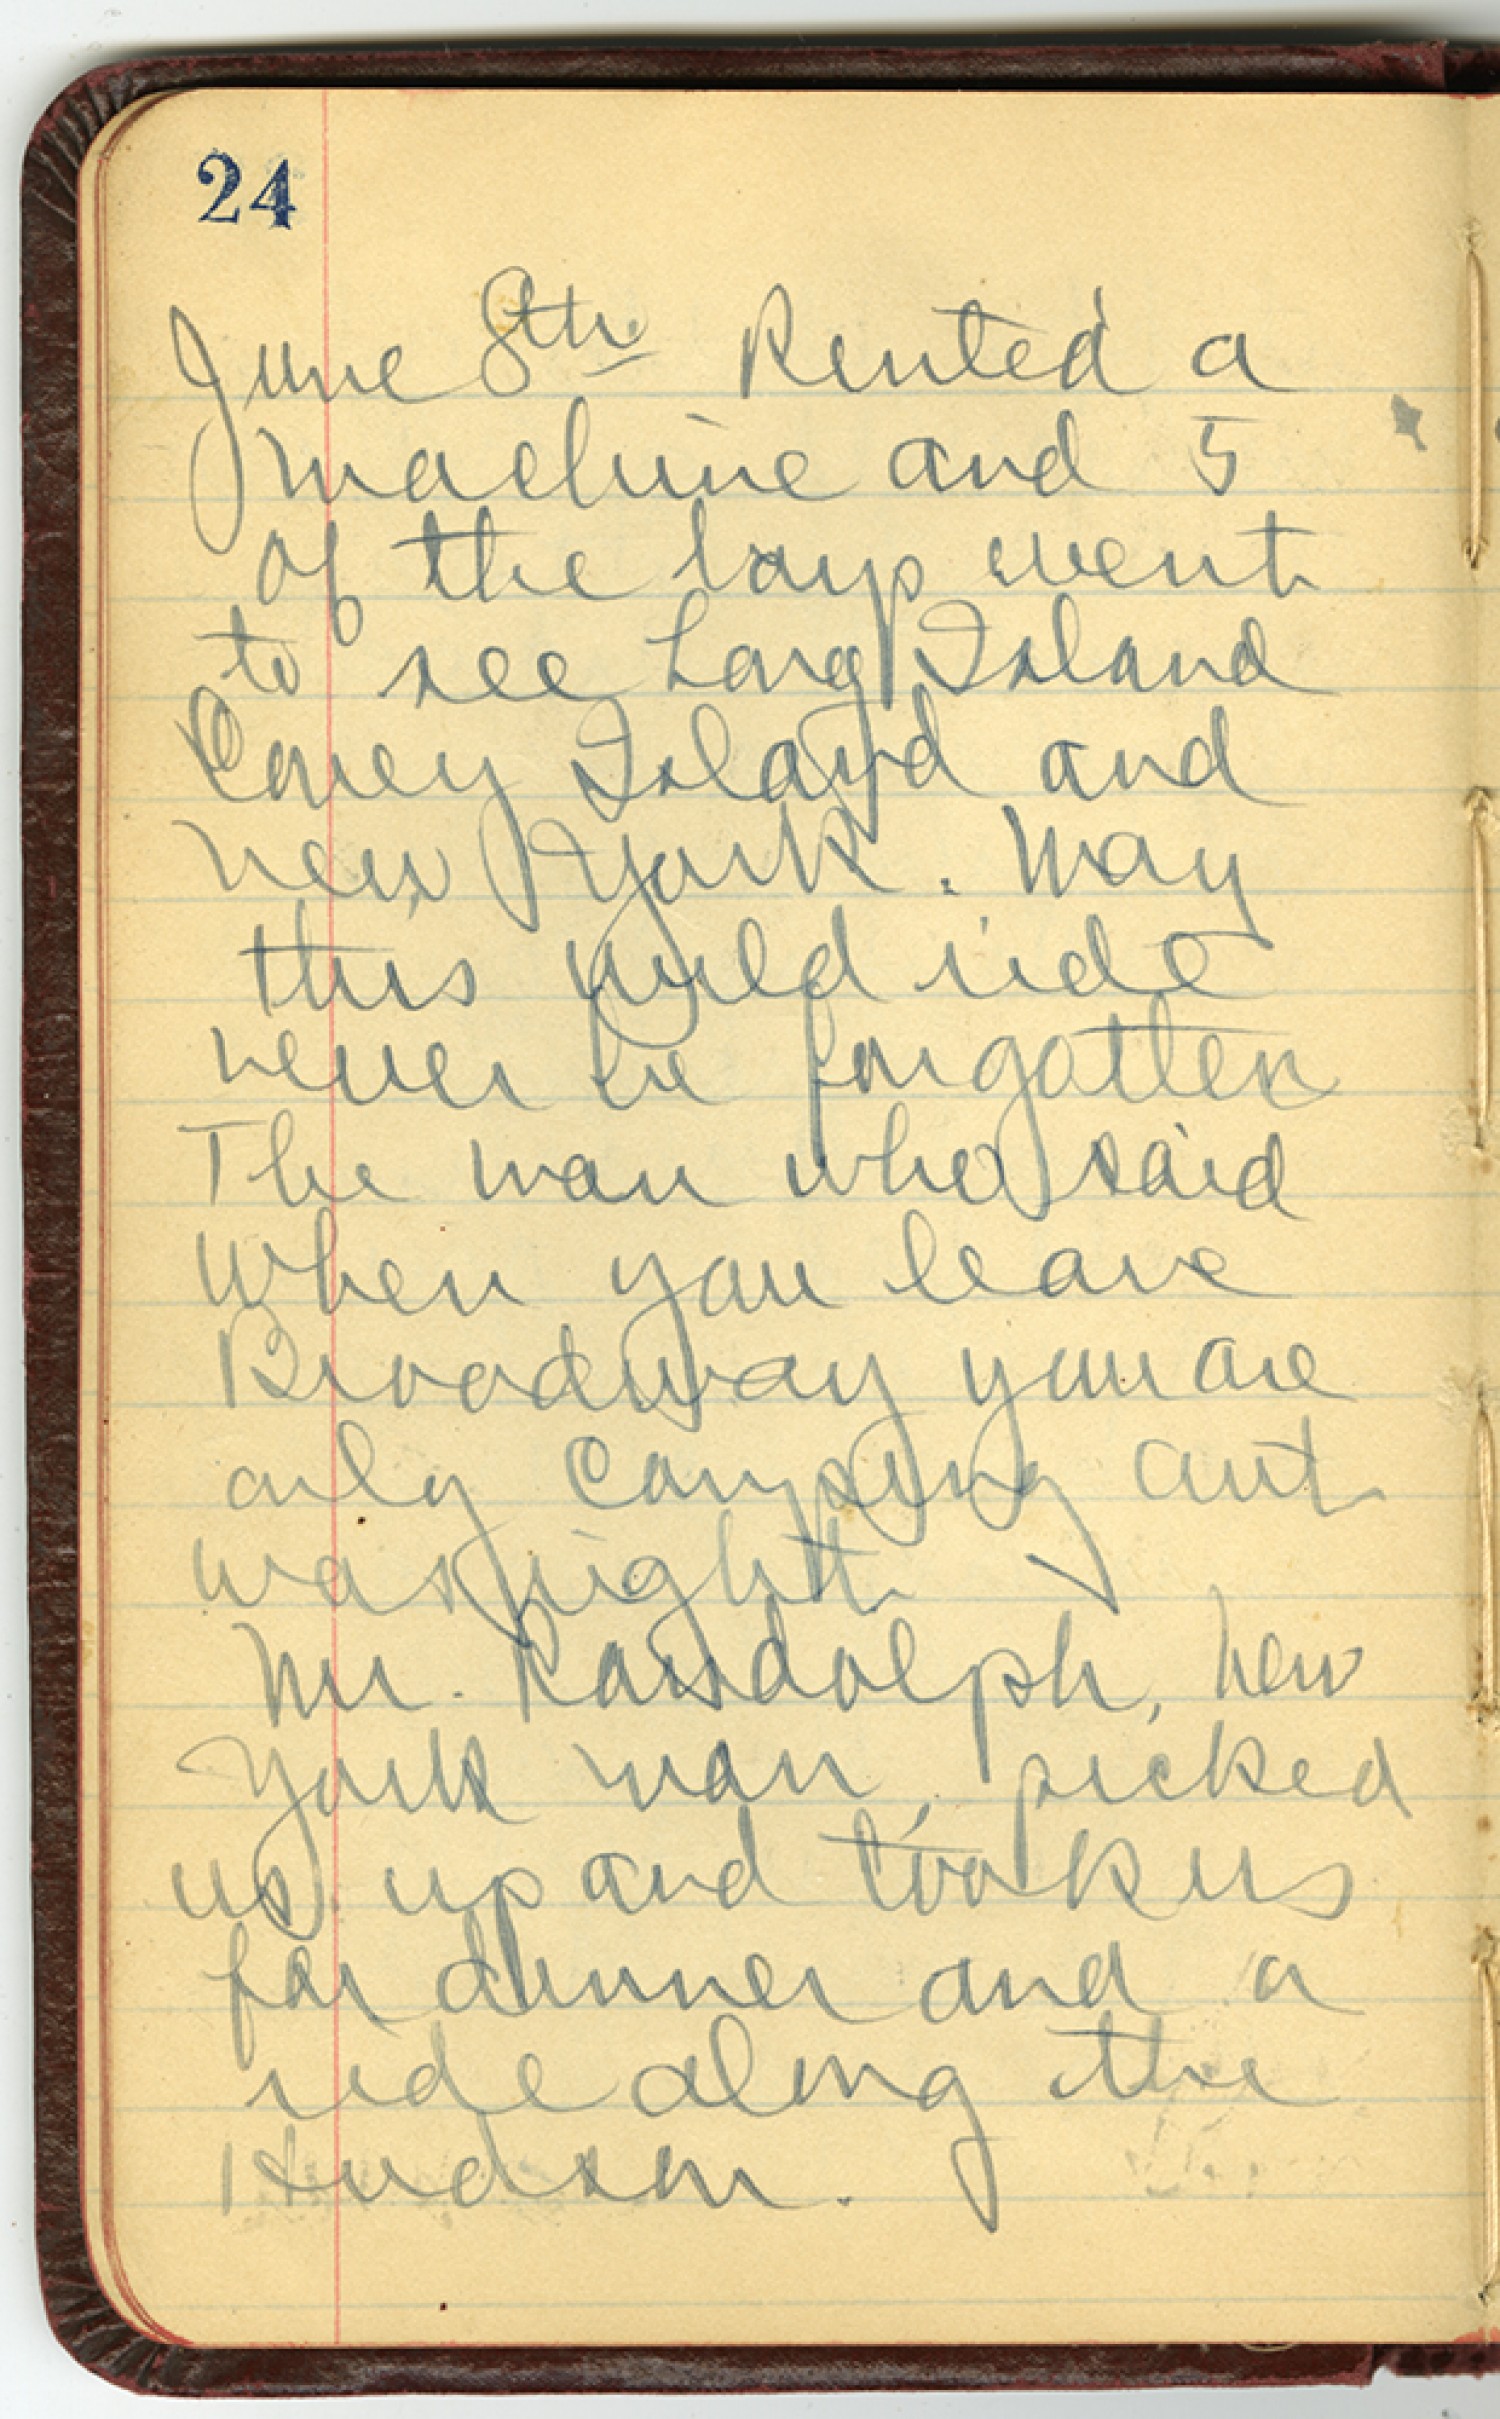 24
June 8th Rented a
machine and 5
of the boys went
to see Long Island
Coney Island and
New York. May
this wild ride
never be forgotten
The man who said
When you leave
Broadway you are
only camping out
was right
Mr. Randolph, New
York man, picked
us up and took us
for dinner and a
ride along the
Hudson.